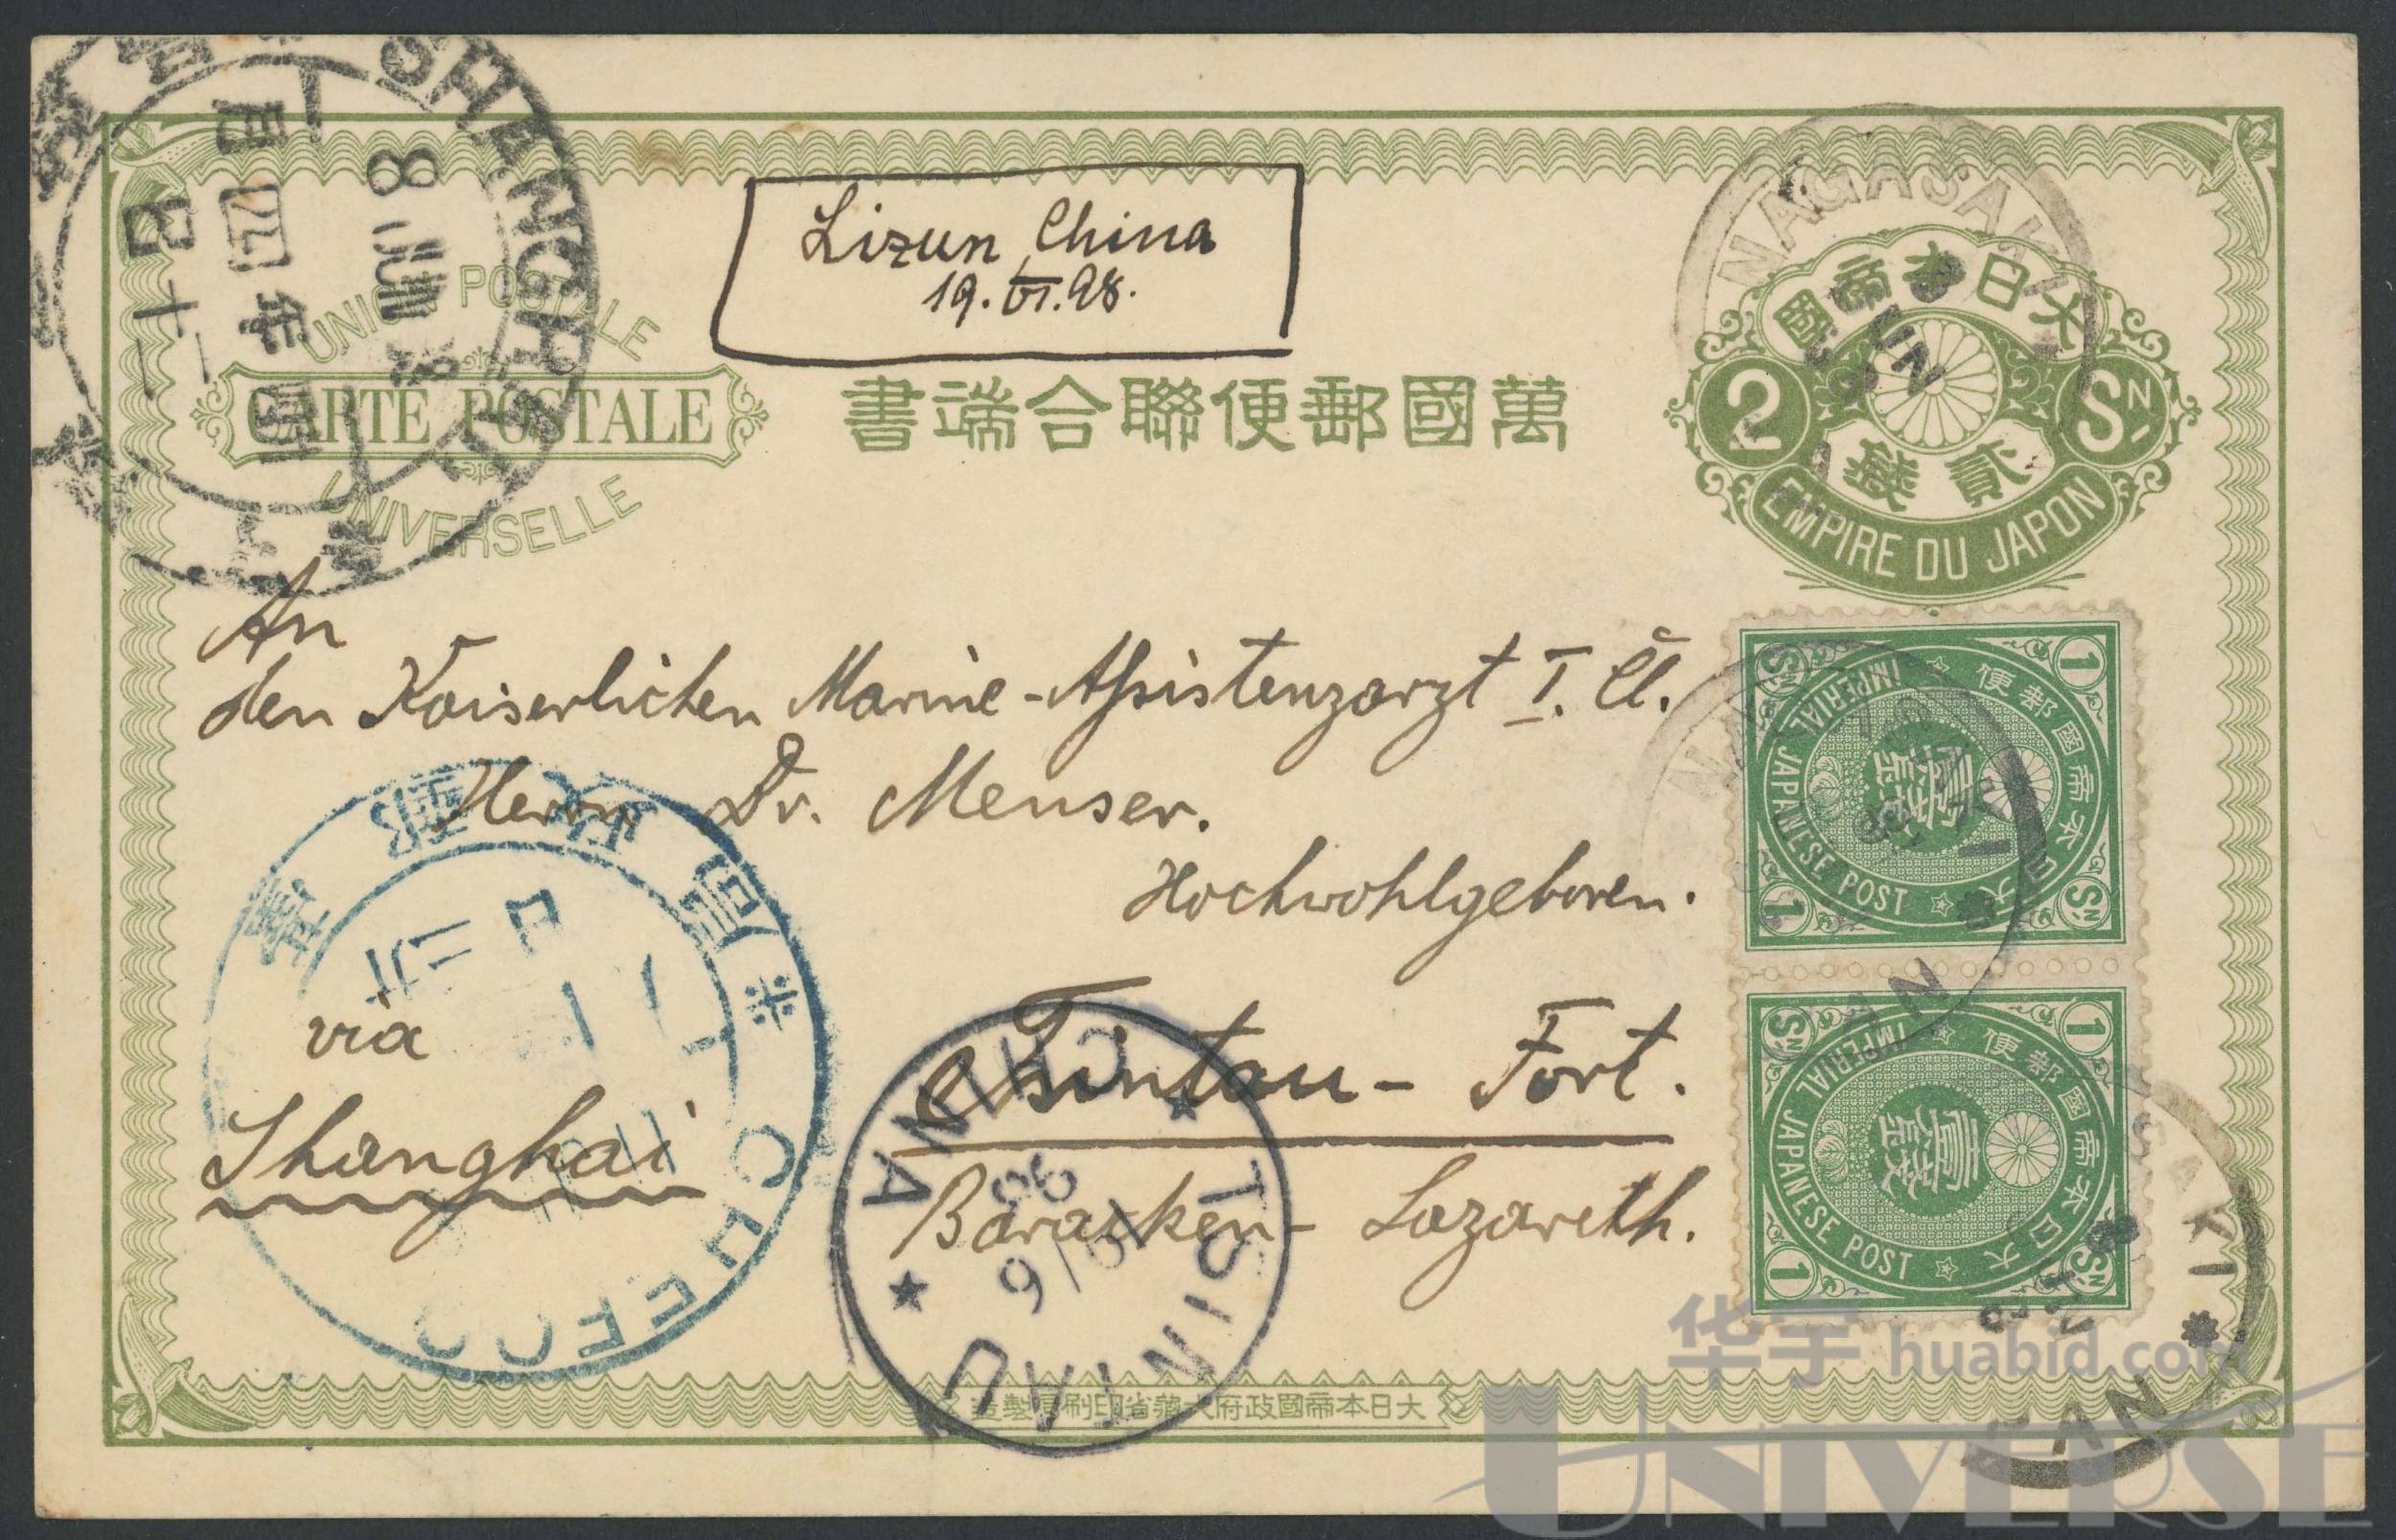 SHANGHAI
8 JUN 98
月四年四
日十二
UNION POSTALE
CARTE POSTALE
UNIVERSELLE
Lizun, China
19. VI. 98.
書端合聯便郵國萬
NAGASAKI
JUN
國帝本日大
2 SN
錢貳
EMPIRE DU JAPON
An
den Kaiserlichen Marine-Assistenzarzt I. Cl.
Herrn Dr. Menser.
Hochwohlgeboren.
via
Shanghai
Tsintau - Fort.
Baracken - Lazareth.
CHEFOO
TSINTAU
CHINA
19/6
98
1 SN
大日本帝國郵便
壹錢
IMPERIAL JAPANESE POST
1 SN
NAGASAKI
1 SN
大日本帝國郵便
壹錢
IMPERIAL JAPANESE POST
1 SN
NAGASAKI
JAPAN
造製局刷印省藏大府政國帝本日大
华宇 huabid.com
UNIVERSE